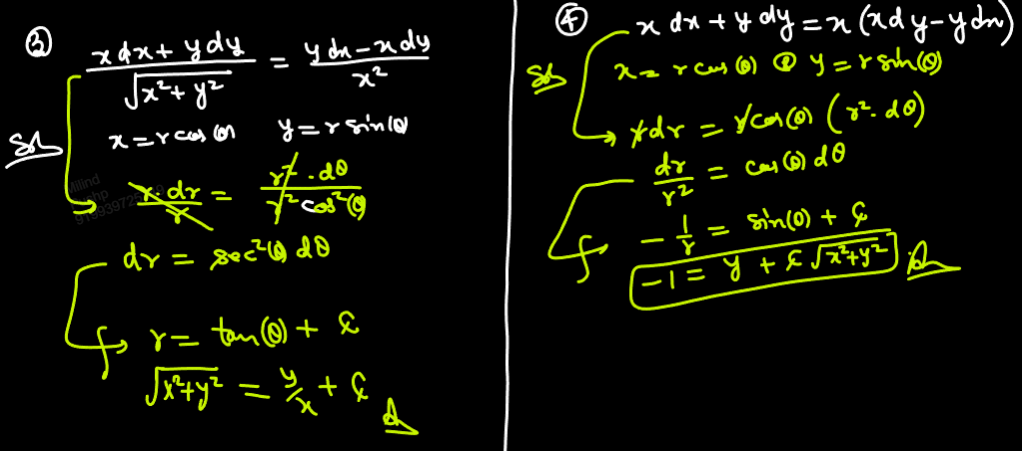 ③ (x dx + y dy)/√(x²+y²) = (y dx − x dy)/x²
Sol x = r cos(θ) y = r sin(θ)
r·dr/r = r²·dθ/(r² cos²(θ))
dr = sec²(θ) dθ
∫ r = tan(θ) + c
√(x²+y²) = y/x + c
④ x dx + y dy = x (x dy − y dx)
Sol x = r cos(θ) y = r sin(θ)
r dr = r cos(θ) (r²·dθ)
dr/r² = cos(θ) dθ
∫ −1/r = sin(θ) + c
−1 = y + c √(x²+y²)